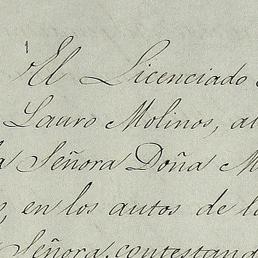 El Licenciado
Lauro Molinos, a
a Señora Doña M
, en los autos de l
Señora, contestand